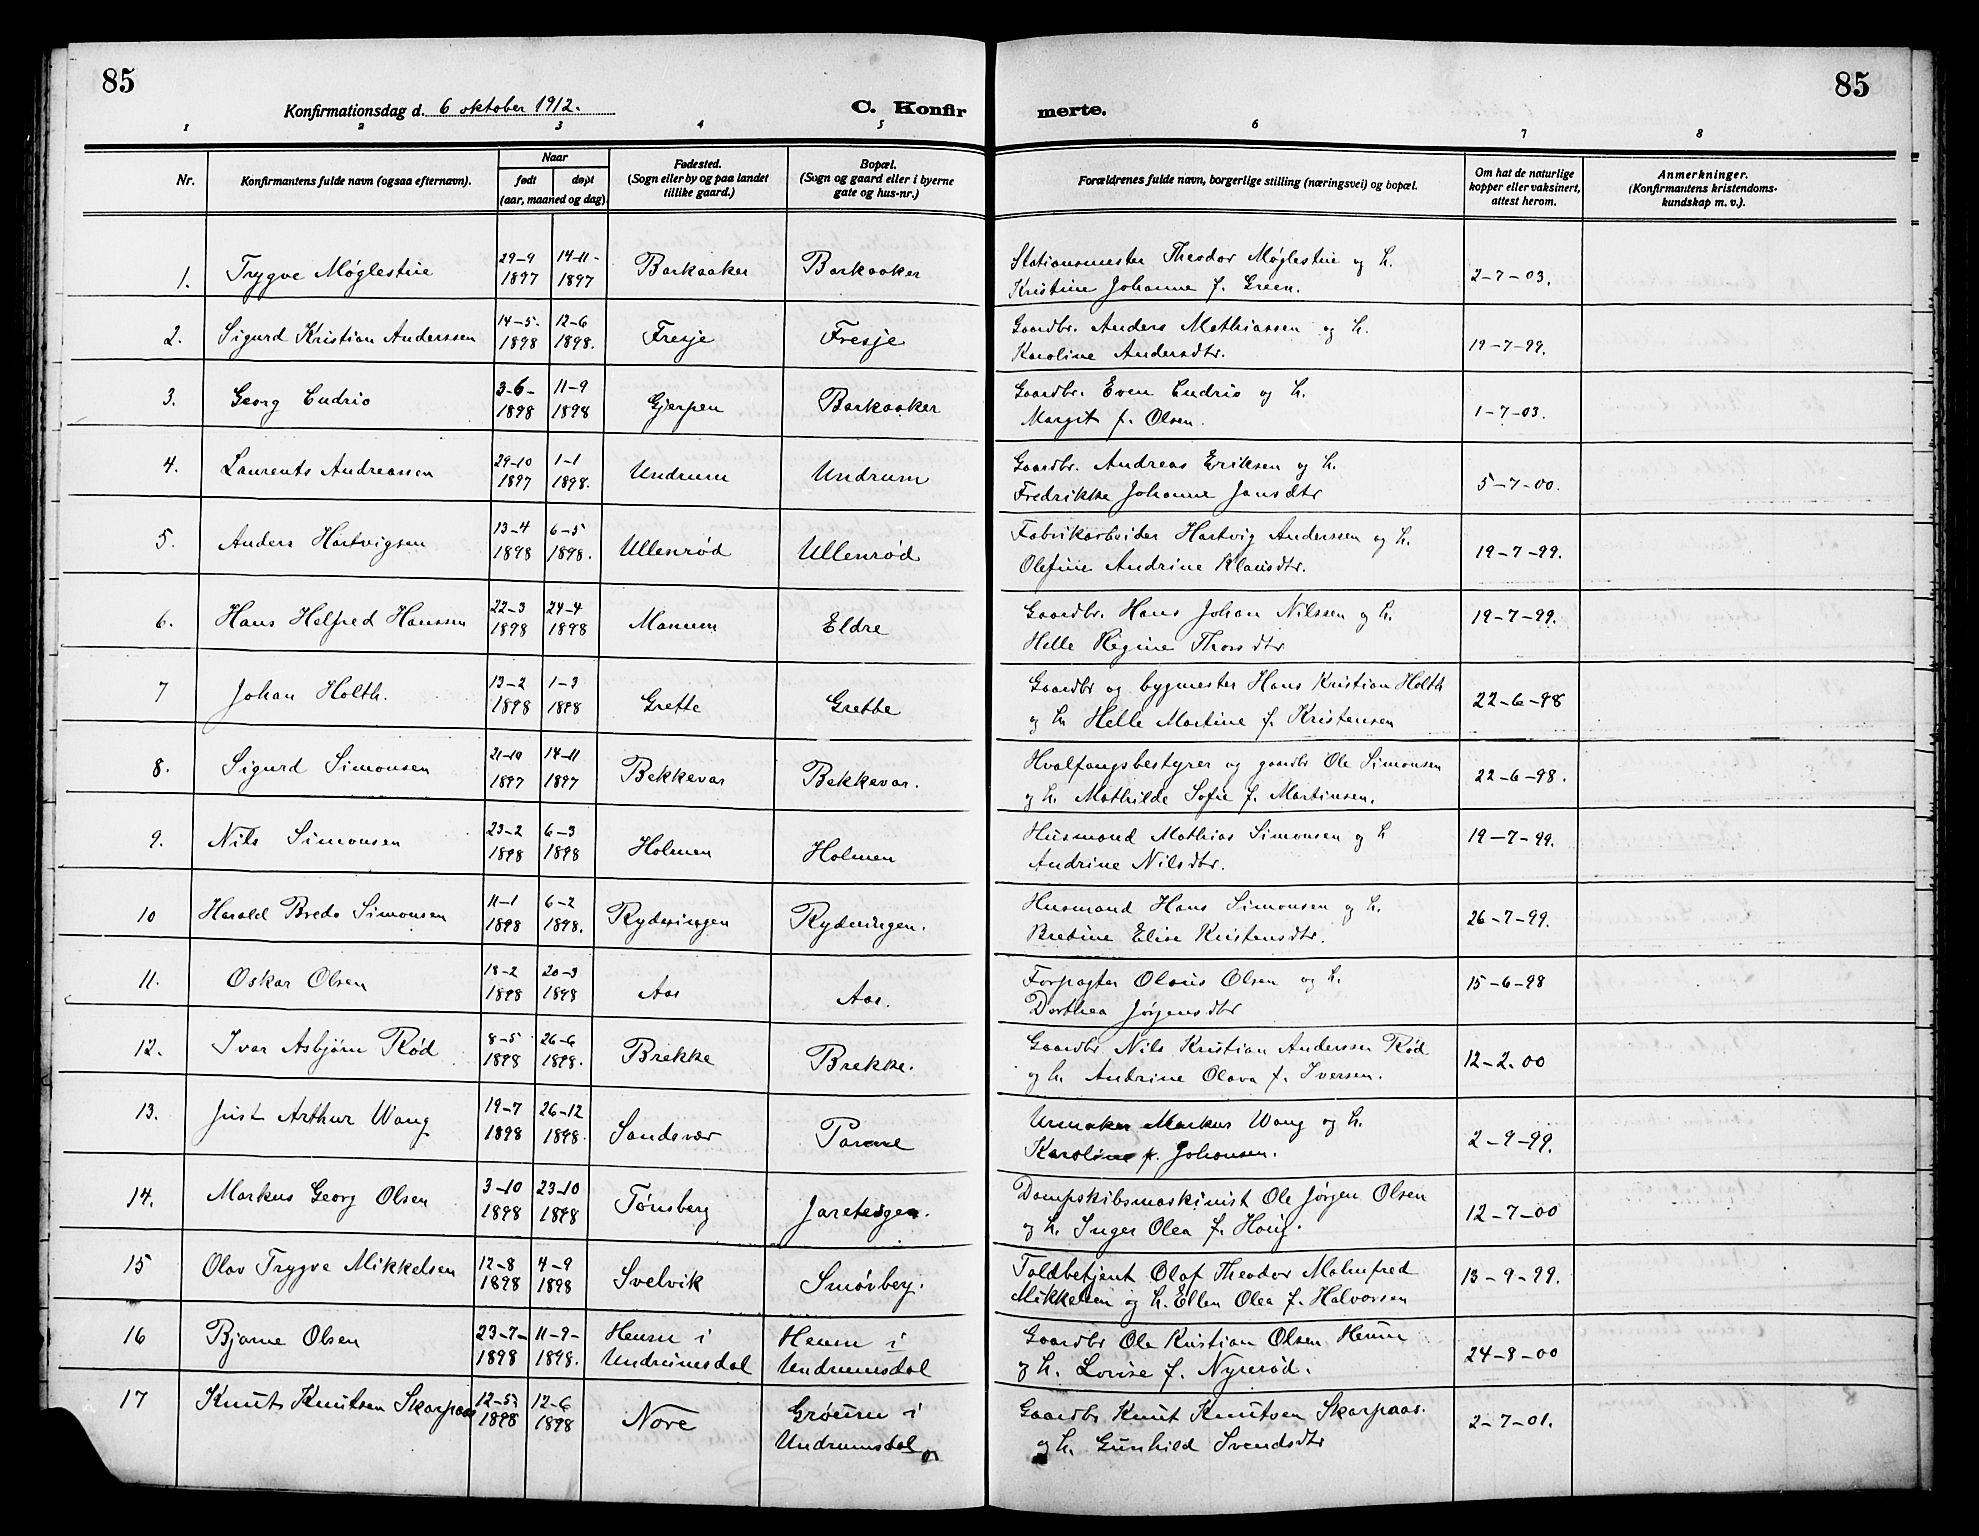 85
85
Konfirmationsdag d. 6 oktober 1912.
C. Konfirmerte.
1 2 3 4 5 6 7 8
Nr.
Konfirmantens fulde navn (ogsaa efternavn).
Naar
født døpt
(aar, maaned og dag)
Fødested.
(Sogn eller by og paa landet
tillike gaard.)
Bopæl.
(Sogn og gaard eller i byerne
gate og hus-nr.)
Forældrenes fulde navn, borgerlige stilling (næringsvei) og bopæl.
Om hat de naturlige
kopper eller vaksinert,
attest herom.
Anmerkninger.
(Konfirmantens kristendoms-
kundskap m. v.).
1. Trygve Møglestue 29-9 1897 14-11- 1897 Barkaaker Barkaaker
Stationsmester Theodor Møglestue og h.
Kristine Johanne f. Green. 2-7-03.
2. Sigurd Kristian Anderssen 14-5. 1898 12-6 1898. Fresje Fresje
Gaardbr. Anders Mathiassen og h.
Karoline Andersdtr. 19-7-99.
3. Georg Endrio 3-6- 1898 11-9 1898 Gjerpen Barkaaker
Gaardbr. Even Endrio og h.
Margit f. Olsen. 1-7-03.
4. Laurents Andreassen 29-10 1897 1-1 1898. Undrum Undrum
Gaardbr. Andreas Eriksen og h.
Fredrikke Johanne Jansdtr 5-7-00.
5. Anders Hartvigsen 13-4 1898 6-5 1898. Ullenrød Ullenrød
Fabrikarbeider Hartvig Anderssen og h.
Olefine Andrine Klausdtr. 19-7-99.
6. Hans Helfred Hanssen 22-3 1898 24-4 1898 Manum Eldre
Gaardbr. Hans Johan Nilssen og h.
Helle Regine Thorsdtr 19-7-99.
7 Johan Holth. 13-2 1898 1-3 1898 Grette Grette
Gaardbr og bygmester Hans Kristian Holth
og h. Helle Martine f. Kristensen 22-6-98
8. Sigurd Simonsen 21-10 1897 14-11 1897 Bekkevar Bekkevar.
Hvalfangsbestyrer og gaardbr Ole Simonsen
og h. Mathilde Sofie f. Martinsen. 22-6-98.
9. Nils Simonsen 23-2 1898 6-3 1898 Holmen Holmen
Husmand Mathias Simonsen og h
Andrine Nilsdtr. 19-7-99.
10 Harald Bredo Simonsen 11-1 1898 6-2 1898. Rydningen Rydningen.
Husmand Hans Simonsen og h.
Bredine Elise Kristensdtr. 26-7-99.
11. Oskar Olsen 18-2 1898 20-3 1898 Aas Aas.
Forpagter Olaus Olsen og h.
Dorthea Jørgensdtr 15-6-98
12. Ivar Asbjørn Rød 8-5 1898 26-6 1898. Brekke Brekke.
Gaardbr Nils Kristian Anderssen Rød
og h. Andrine Olava f. Iversen. 12-2.00
13. Just Arthur Wang 19-7 1898 26-12 1898. Sandsvær
Urmaker Markus Wang og h.
Karoline f. Johansen. 2-9-99.
14. Markus Georg Olsen 3-10 1898 23-10 1898 Tønsberg Jareteigen.
Dampskibsmaskinist Ole Jørgen Olsen
og h. Inger Olea f. Haug. 12-7-00
15 Olav Trygve Mikkelsen 12-8 1898 4-9 1898 Svelvik Smørberg.
Toldbetjent Olaf Theodor Malmfred
Mikkelsen og h. Ellen Olea f. Halvorsen 13-9-99.
16 Bjarne Olsen 23-7- 1898 11-9- 1898. Heum i Undrumsdal Heum i Undrumsdal
Gaardbr Ole Kristian Olsen Heum
og h. Lovise f. Nyrerød. 24-8-00
17 Knut Knutsen Skarpaas 12-5 1898 12-6 1898 Nore Grøum i Undrumsdal
Gaardbr Knut Knutsen Skarpaas.
og h. Gunhild Svendsdtr 2-7-01.